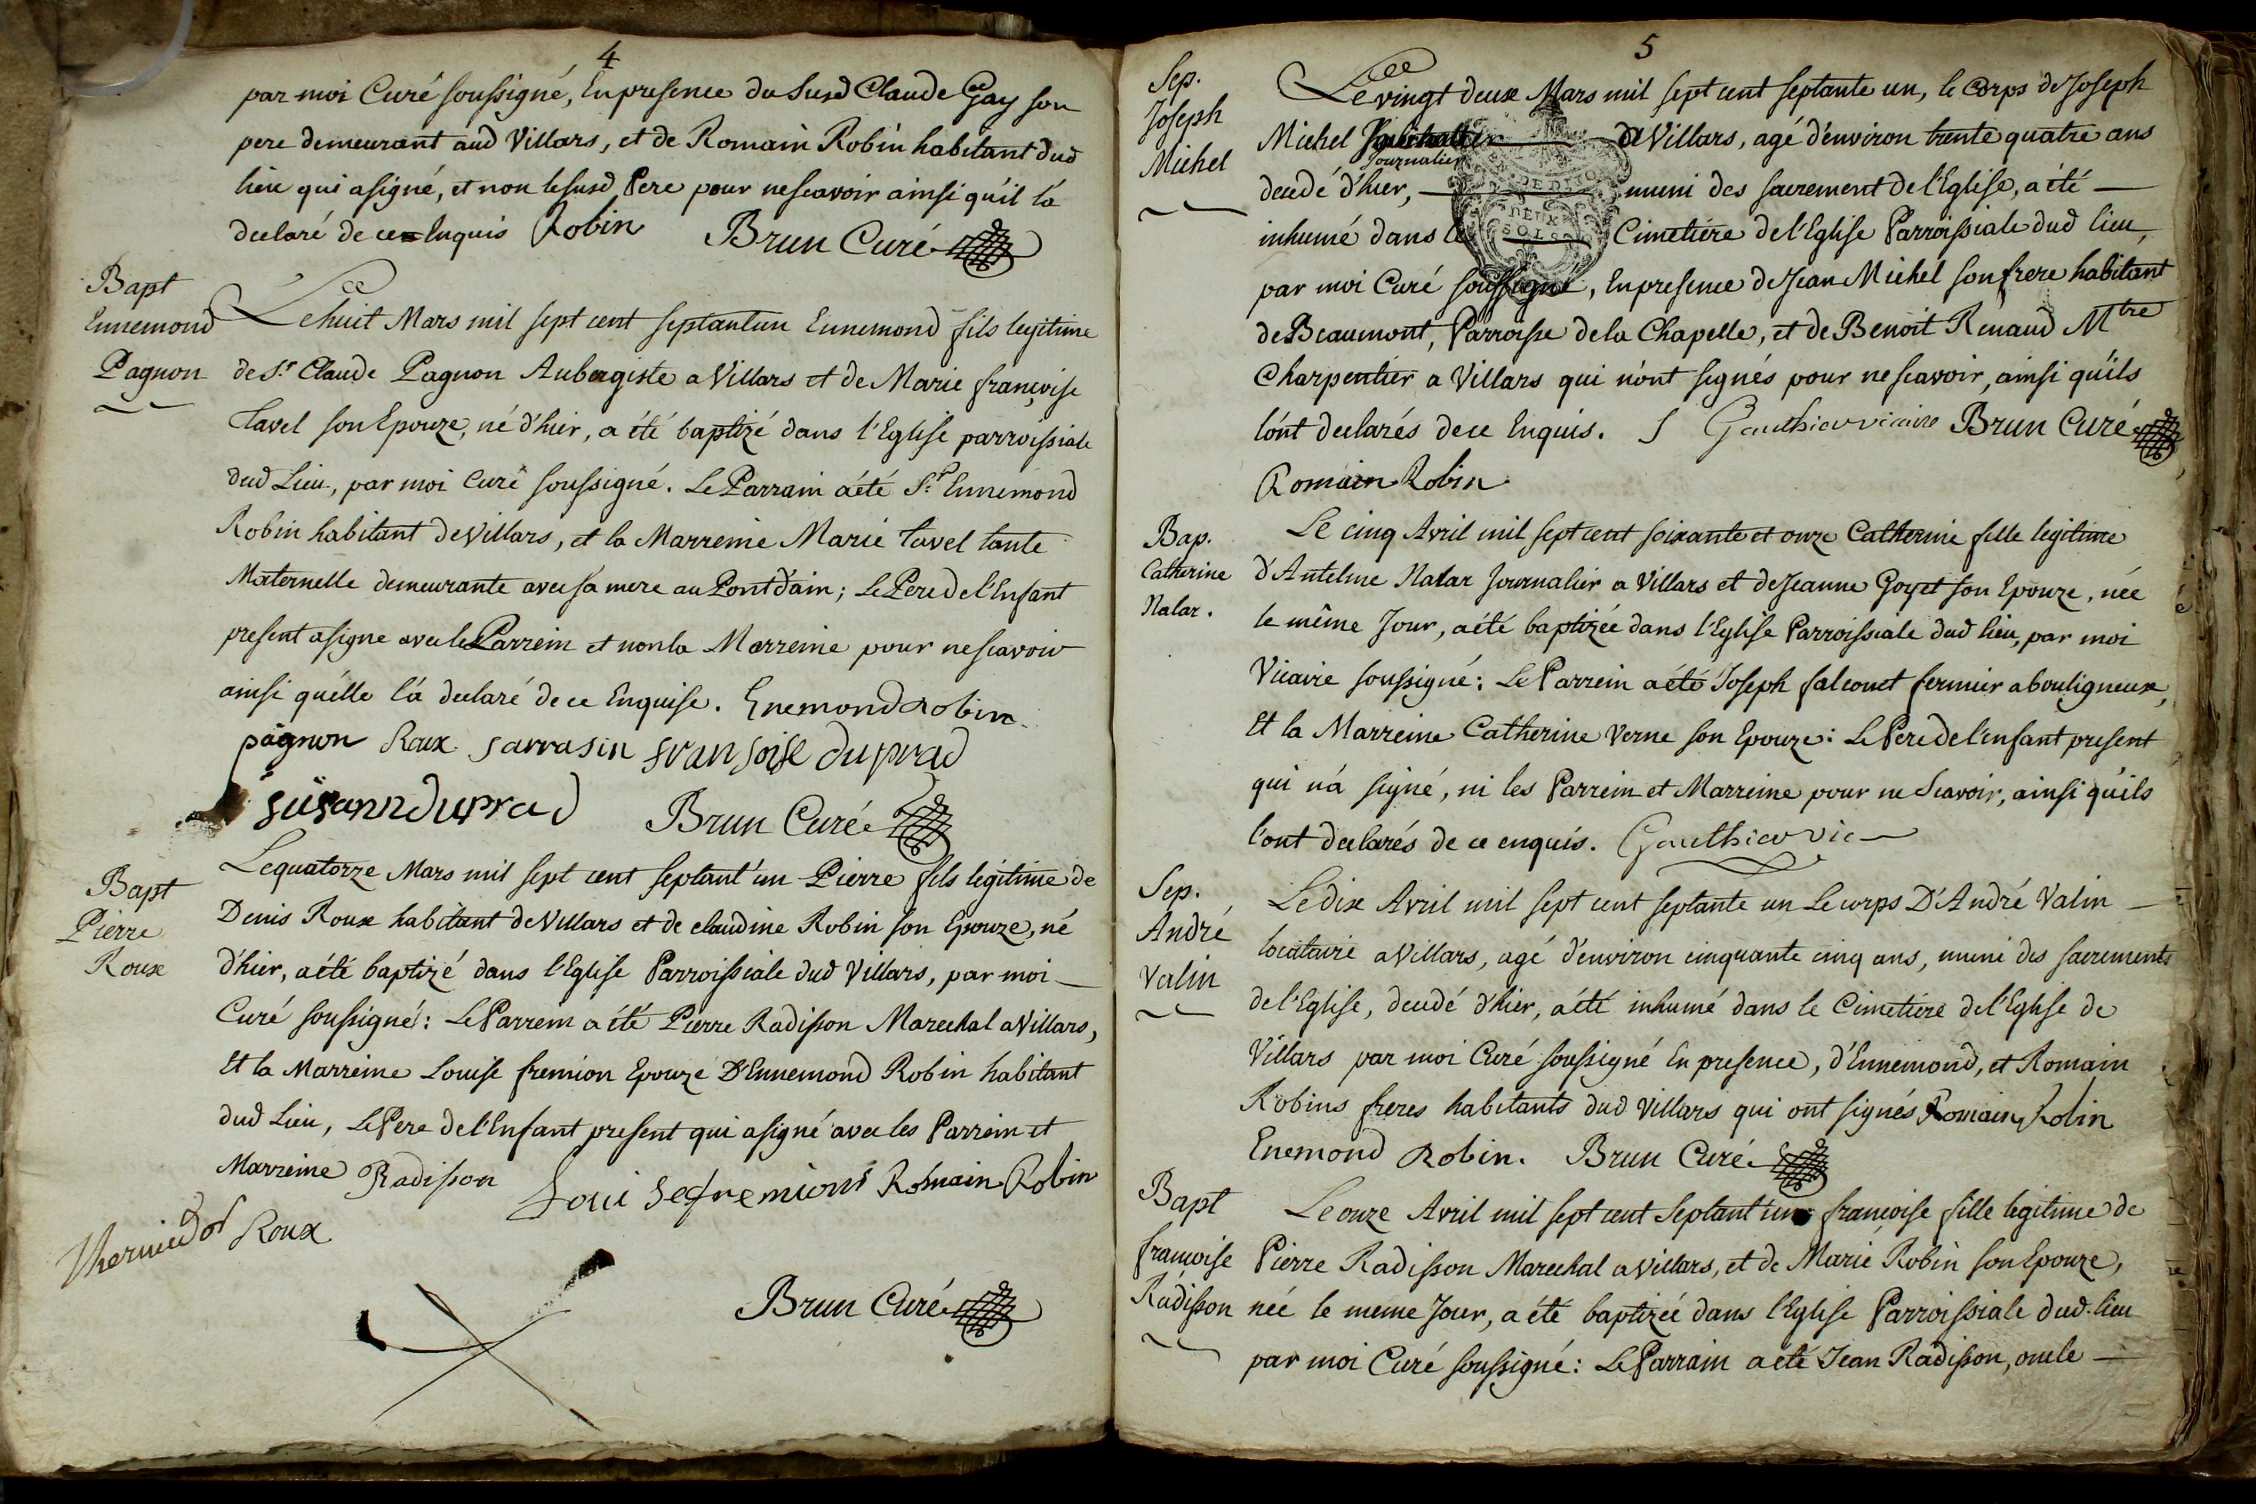 4
par moi Curé soussigné, En presence du Susd Claude Gay son
pere demeurant aud Villars, et de Romain Robin habitant dud
lieu qui a signé, et non le susd Pere pour ne scavoir ainsi qu'il l'a
declaré de ce Enquis Robin Brun Curé
Bapt
Ennemond
Pagnon
Le huit Mars mil sept cent septant'un Ennemond fils legitime
de Sr. Claude Pagnon Aubergiste a Villars et de Marie françoise
Tavel son Epouze, né d'hier, a été baptizé dans l'Eglise parroissiale
dud Lieu, par moi Curé soussigné. Le Parrain a été Sr. Ennemond
Robin habitant de Villars, et la Marreine Marie Tavel tante
Maternelle demeurante avec sa mere au Pont d'ain; Le Pere de l'Enfant
present a signe avec le Parrein et non la Marreine pour ne scavoir
ainsi qu'elle l'a declaré de ce Enquise. Enemond Robin
pagnon Roux Sarrasin fransoise duprad
susann duprad Brun Curé
Bapt
Pierre
Roux
Le quatorze Mars mil sept cent septant'un Pierre fils legitime de
Denis Roux habitant de Villars et de claudine Robin son Epouze, né
d'hier, a été baptizé dans l'Eglise Parroissiale dud Villars, par moi
Curé soussigné: Le Parrein a été Pierre Radisson Marechal a Villars,
Et la Marreine Louise fremion Epouze D'Ennemond Robin habitant
dud Lieu, Le Pere de l'Enfant present qui a signé avec les Parrein et
Marreine Radisson Loui se fremion Romain Robin
Roux
Brun Curé
5
Sep.
Joseph
Michel
Le vingt deux Mars mil sept cent septante un, le corps de Joseph
Michel Journalier de Villars, agé d'environ trente quatre ans
decedé d'hier, muni des sacrement de l'Eglise, a été
inhumé dans le Cimetiere de l'Eglise Parroissiale dud lieu,
par moi Curé soussigné, En presence de Jean Michel son frere habitant
de Beaumont, Parroisse de la Chapelle, et de Benoit Renaud Mtre
Charpentier a Villars qui n'ont signés pour ne scavoir, ainsi qu'ils
l'ont declarés de ce Enquis. Gauthier vicaire Brun Curé
Romain Robin
Bap.
Catherine
Nalar.
Le cinq Avril mil sept cent soixante et onze Catherine fille legitime
d'Antelme Nalar Journalier a Villars et de Jeanne Goyet son Epouze, née
le même Jour, a été baptizée dans l'Eglise Parroissiale dud lieu, par moi
Vicaire soussigné: Le Parrein a été Joseph falconet fermier a bouligneux,
Et la Marreine Catherine Verne son Epouze: Le Pere de l'enfant present
qui n'a signé, ni les Parrein et Marreine pour ne Scavoir, ainsi qu'ils
l'ont declarés de ce enquis. Gauthier vic
Sep.
André
Valin
Le dix Avril mil sept cent septante un Le corps D'André Valin
locataire a Villars, agé d'environ cinquante cinq ans, muni des sacrements
de l'Eglise, decedé d'hier, a été inhumé dans le Cimetiere de l'Eglise de
Villars par moi Curé soussigné En presence, d'Ennemond, et Romain
Robins freres habitants dud Villars qui ont signés Romain Robin
Enemond Robin. Brun Curé
Bapt
francoise
Radisson
Le onze Avril mil sept cent Septant'un francoise fille legitime de
Pierre Radisson Marechal a Villars, et de Marie Robin son Epouze,
née le meme Jour, a été baptizée dans l'Eglise Parroissiale dud. lieu
par moi Curé soussigné: Le Parrain a eté Jean Radisson, oncle